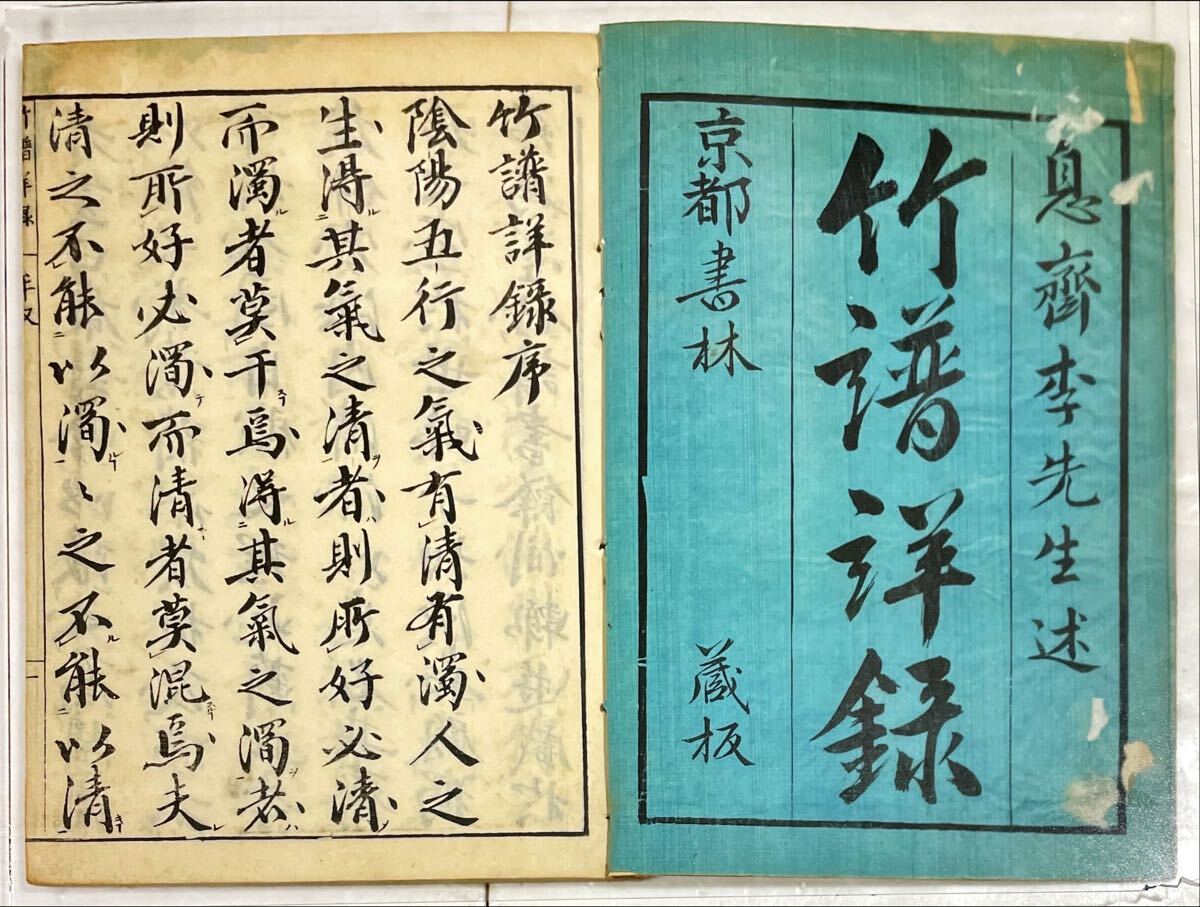 息齋李先生述
竹譜詳録
京都書林 蔵板
竹譜詳録序
陰陽五行之氣有清有濁人之
生得其氣之清者則所好必清
而濁者莫干焉得其氣之濁者
則所好必濁而清者莫混焉夫
清之不能以濁〻之不能以清
竹譜詳録